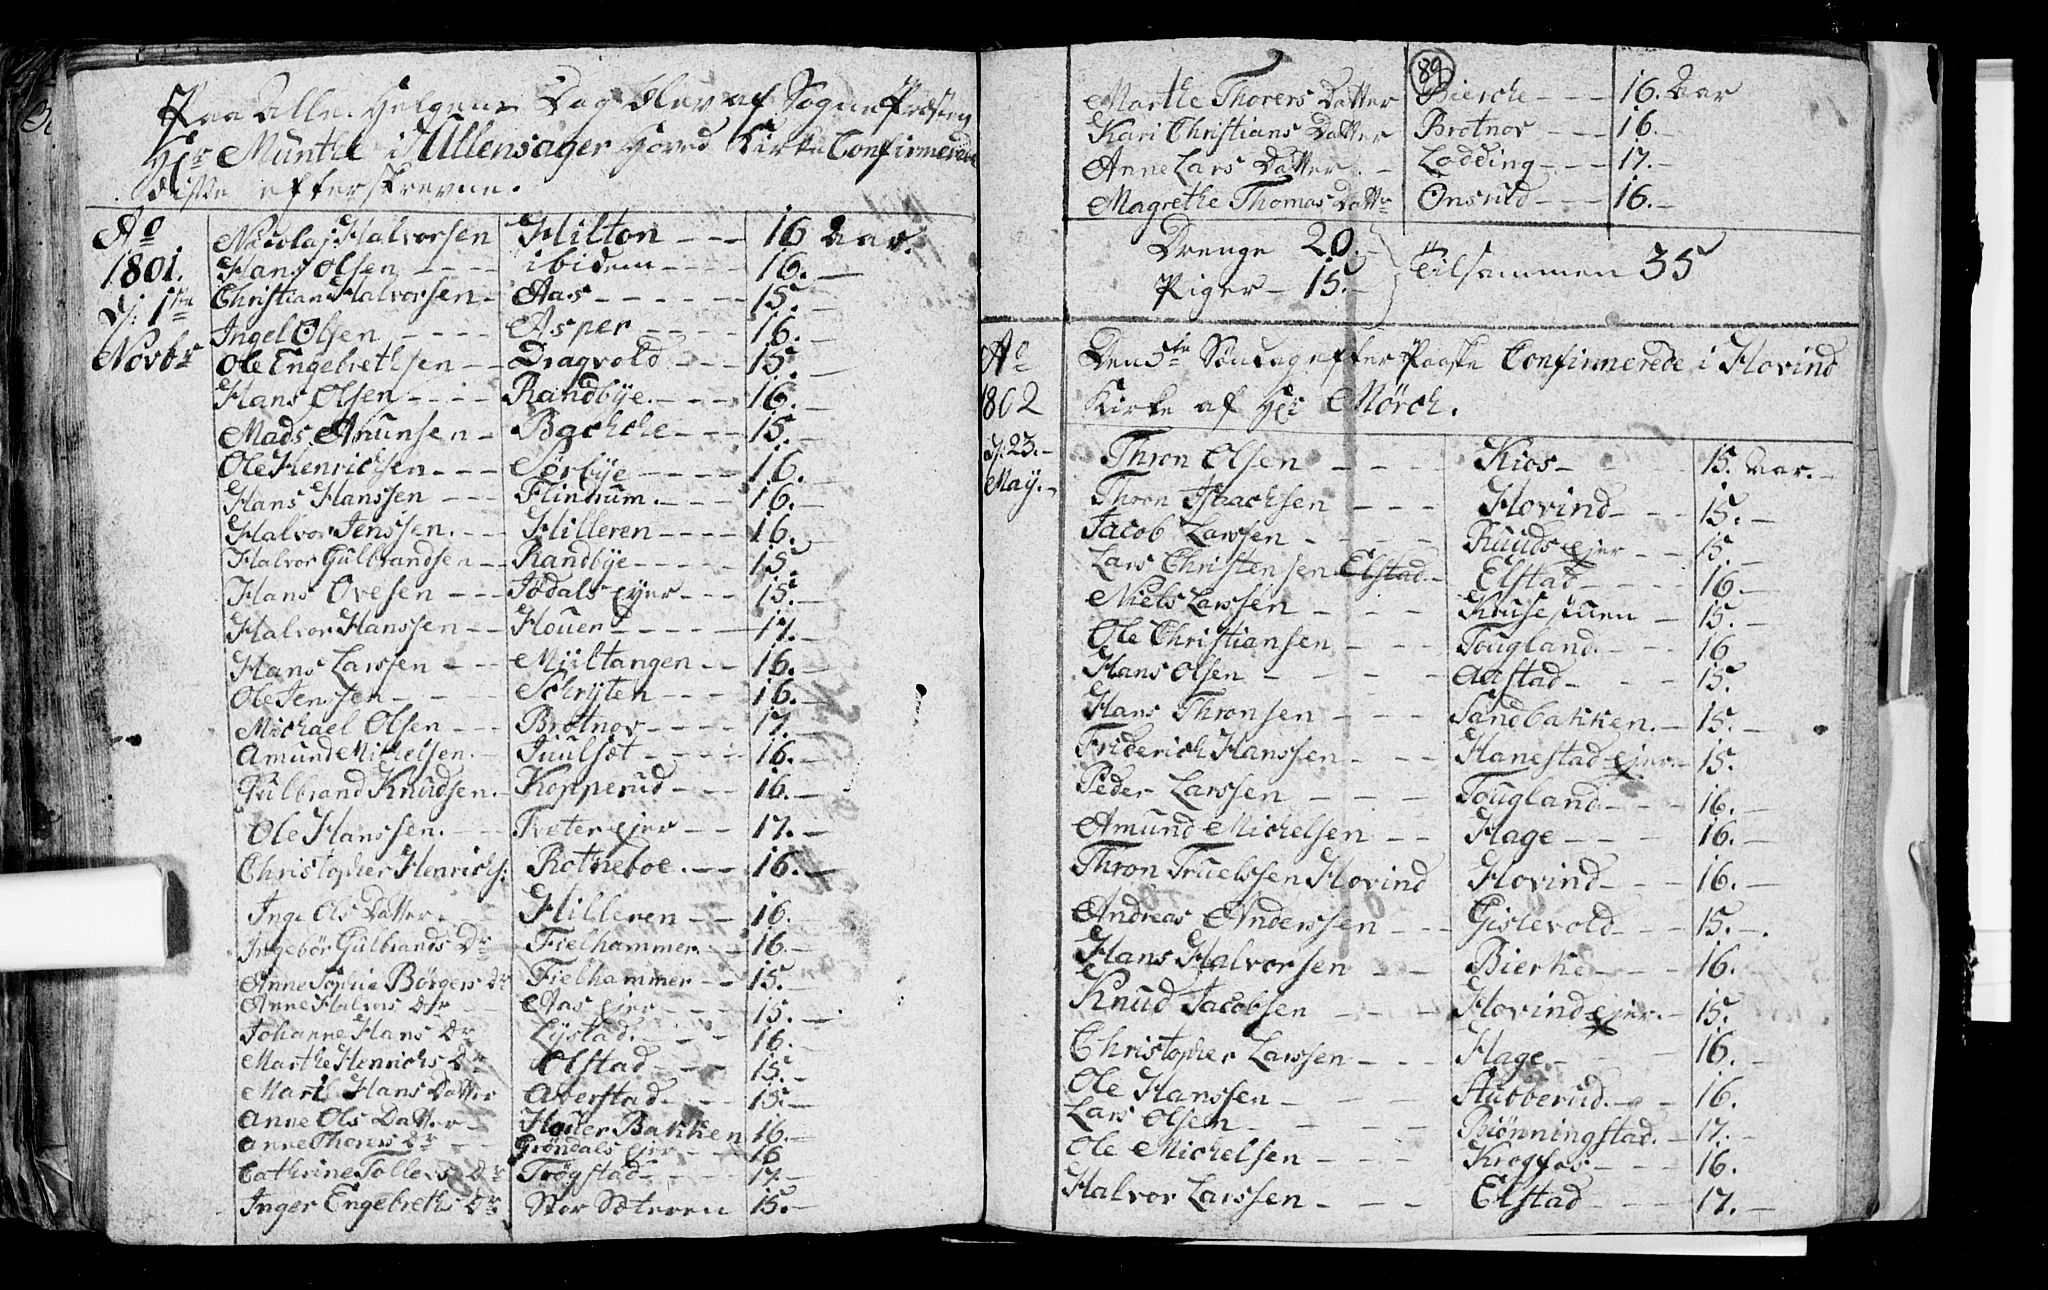 Paa Alle Helgens Dag blev af Sogne Præsten
Hr. Munthe i Ullensager Hoved Kirke Confirmerede
disse efterskrevne.
Ao 1801. D: 1te Novbr
Nicolaj Halvorsen Hilton - - - 16 Aar.
Hans Olsen - - - - ibidem - - - - 16. -
Christian Halvorsen - Aas - - - - - - 15. -
Ingel Olsen - - - - Asper - - - - 16. -
Ole Engebrethsen - - Dragvold - - - 15. -
Hans Olsen - - - - Randbÿe. - - - 16. -
Mads Anunsen - Bachche - - - 15. -
Ole Henrichsen - - - Sørbÿe - - - - 16. -
Hans Hanssen - - - Flindrum. - - - 16. -
Halvor Jenssen. - - - Hilleren - - - - 16. -
Halvor Gulbrandsen - - Randbÿe - - - - 15. -
Hans Ovesen - - - Jødals eÿer - - - 15. -
Halvor Hanssen - - Houer - - - - - 17. -
Hans Larssen - - - Miiltangen - - 16. -
Ole Jenssen - - - - Schrÿten - - - 16. -
Michael Olsen - - - Brotnov - - - - 17. -
Amund Michelsen. - Juulsøt - - - - 16. -
Gulbrand Knudsen. - Kopperud - - - 16. -
Ole Hanssen. - - - Tveter ejer - - 17. -
Christopher Henrichs: Rotneboe. - - - 16. -
Inge Ols Datter - - Hilleren - - 16.
Ingebør Gulbrands Dr Fielhammer - - 16. -
Anne Sophie Børgers Dr Fielhammer - - 15. -
Anne Halvors Dtr - - Aas ejer - - - 15. -
Johanne Hans Dr Lÿstad. - - - 16. -
Marthe Henrichs Dr Olstad - - - 15. -
Mart Hans Datter Averstad. - - - 15. -
Anne Ols Datter - Houer Bakken 16. -
Anne Thorers Dr - - Grøndals ejer - - 16
Cathrine Tollers Dr Trøgstad - - - 17. -
Inger Engebreths Dr Stor Sæteren 15. -
89
Marthe Thorers Datter Bierche - - - 16. Aar
Kari Christians Datter Brotnov - - - 16. -
Anne Lars Datter. - Lodding - - - 17. -
Magrethe Thomas Dattr Onsrud - - - 16. -
Drenge 20. -
Piger - 15. -
Tilsammen 35
Ao 1802 D: 23. - Maÿ. -
Den 5te Søndag efter Paaske Confirmerede i Hovind
Kirke af Hr. Mörch.
Thron Olsen - - - Kios - - - 15. Aar. -
Thron Isaachsen - - - Hovind - - - 15. -
Jacob Larssen - - - - Ruuds ejer - - 15. -
Lars Christensen Elstad - Elstad - - - - 16. -
Niels Larssen - - - - Krusestuen - 15. -
Ole Christiansen - - - Tougland. - - - 16
Hans Olsen - - - - - Altstad - - - - 15. -
Hans Thronsen - - - Sandbakken. - 15. -
Friderich Hanssen - - - Hanestad ejer - 15.
Peder Larssen - - - Tougland - - - 16. -
Amund Michelsen - - Hage - - - 16. -
Thron Truelssen Hovind Hovind - - - 16. -
Andreas Anderssen - - - Gislevold - - - 15. -.
Hans Halvorsen - - - Bierke - - - 16. -
Knud Jacobsen - - - Hovind ejer. - 15.
Christopher Larssen - - - Hage. - - - 16. -
Ole Hanssen - - - Hubberud. - - 16.
Lars Olsen - - - - Biönningstad. - 17. -
Ole Michelsen - - - Krogfos - - - 16.
Halvor Larssen - - - Elstad - - - 17. -